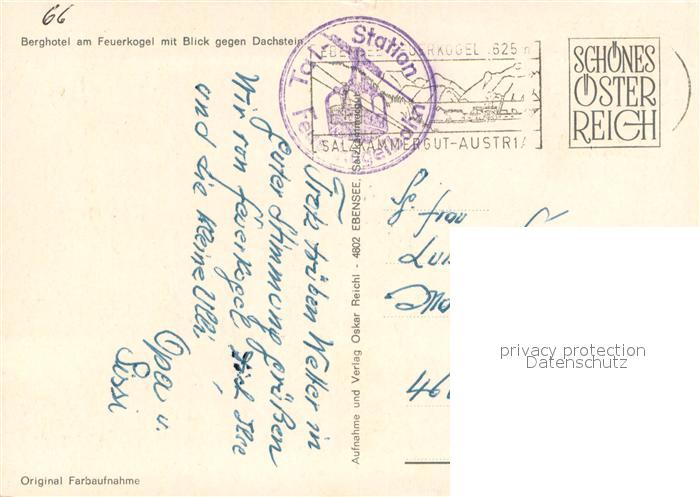 66
Berghotel am Feuerkogel mit Blick gegen Dachstein
Tal Station
SALZKAMMERGUT-AUSTRIA
SCHÖNES
ÖSTER
REICH
Trotz trüben Wetter in
guter Stimmung grüßen
Wir vom Feuerkogel Dich Ilse
und die kleine Ulli,
Opa u.
Sissi
Aufnahme und Verlag Oskar Reichl - 4802 EBENSEE, Salzkammergut
Frau
privacy protection
Datenschutz
Original Farbaufnahme